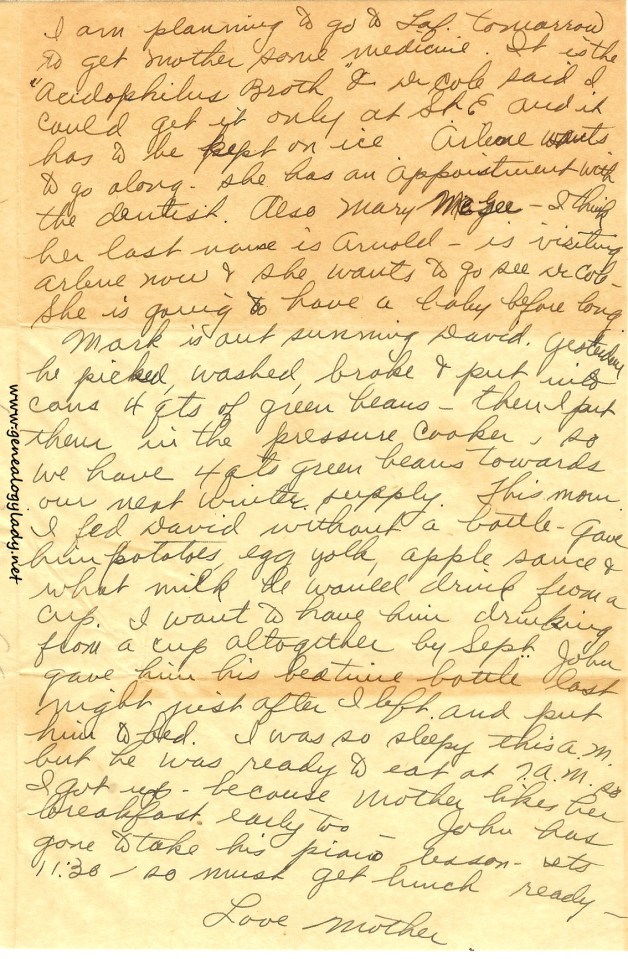 I am planning to go to Laf. tomorrow
to get mother some medicine. It is the
"Acidophilus Broth" & Dr Cole said I
could get it only at St E and it
has to be kept on ice Arlene wants
to go along - she has an appointment with
the dentist. Also Mary McGee - I think
her last name is Arnold - is visiting
Arlene now & she wants to go see Dr Cole -
She is going to have a baby before long.
Mark is out sunning David. Yesterday
he picked, washed, broke & put into
cans 4 qts of green beans - then I put
them in the pressure cooker, so
we have 4 qts green beans towards
our next winter supply. This morn.
I fed David without a bottle - gave
him potatoes, egg yolk, apple sauce &
what milk he would drink from a
cup. I want to have him drinking
from a cup altogether by Sept. John
gave him his bedtime bottle last
night just after I left and put
him to bed. I was so sleepy this a.m.
but he was ready to eat at 7 a.m. so
I got up - because Mother likes her
breakfast early too - John has
gone to take his piano lesson - its
11:30 - so must get lunch ready -
Love Mother.
www.genealogylady.net